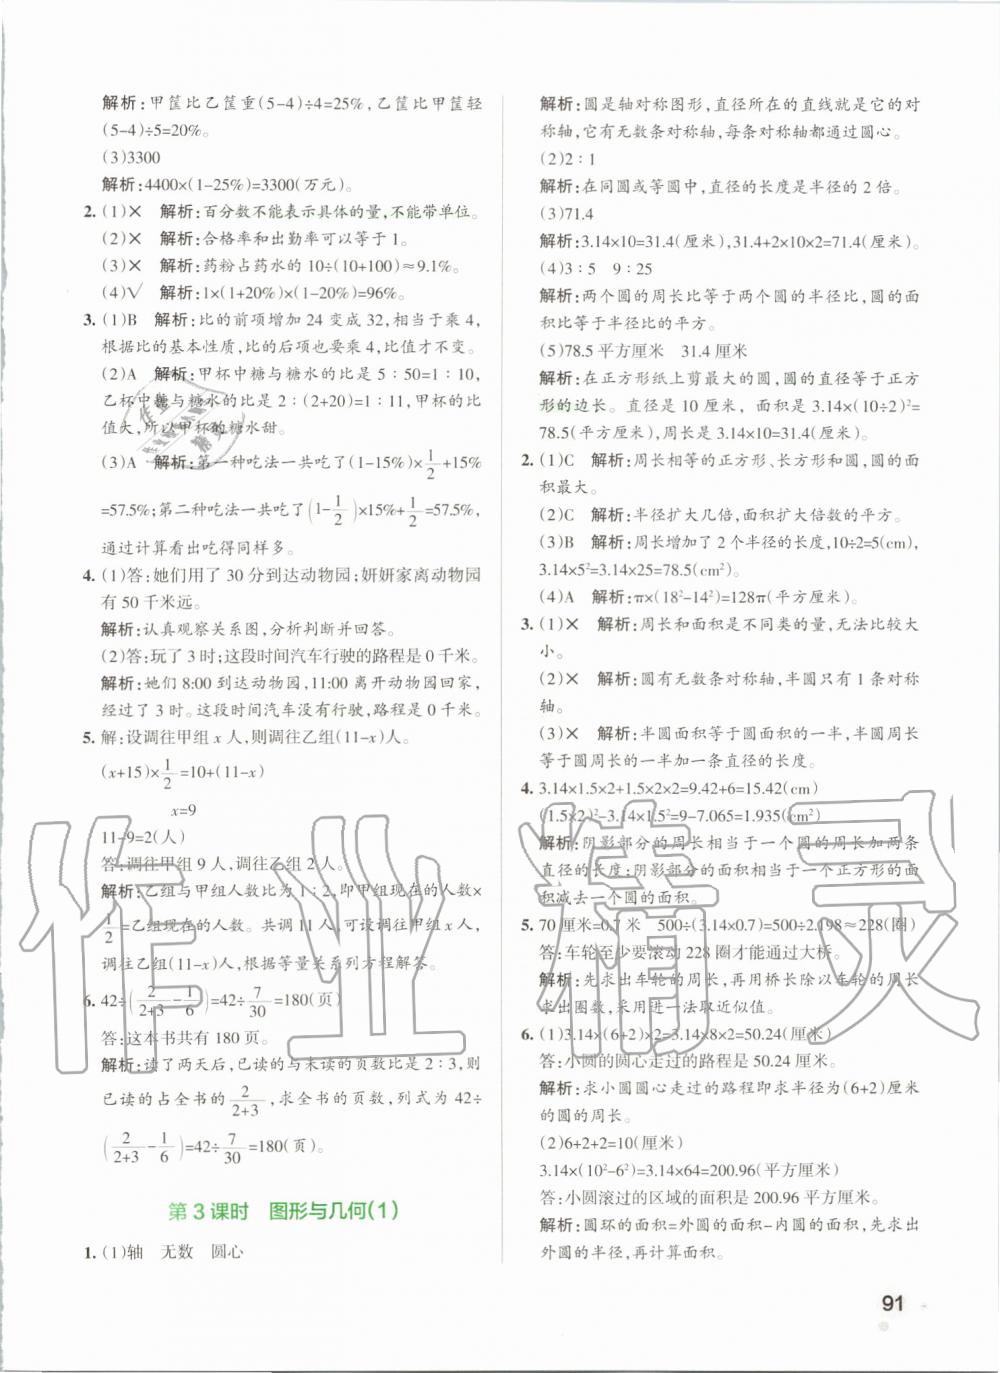 解析:甲筐比乙筐重(5-4)÷4=25%,乙筐比甲筐轻
(5-4)÷5=20%。
(3)3300
解析:4400×(1-25%)=3300(万元)。
2. (1)× 解析:百分数不能表示具体的量,不能带单位。
(2)× 解析:合格率和出勤率可以等于1。
(3)× 解析:药粉占药水的10÷(10+100)≈9.1%。
(4)√ 解析:1×(1+20%)×(1-20%)=96%。
3. (1)B 解析:比的前项增加24变成32,相当于乘4,
根据比的基本性质,比的后项也要乘4,比值才不变。
(2)A 解析:甲杯中糖与糖水的比是5∶50=1∶10,
乙杯中糖与糖水的比是2∶(2+20)=1∶11,甲杯的比
值大,所以甲杯的糖水甜。
(3)A 解析:第一种吃法一共吃了(1-15%)×1/2+15%
=57.5%;第二种吃法一共吃了(1-1/2)×15%+1/2=57.5%,
通过计算看出吃得同样多。
4. (1)答:她们用了30分到达动物园;妍妍家离动物园
有50千米远。
解析:认真观察关系图,分析判断并回答。
(2)答:玩了3时;这段时间汽车行驶的路程是0千米。
解析:她们8:00到达动物园,11:00离开动物园回家,
经过了3时。这段时间汽车没有行驶,路程是0千米。
5. 解:设调往甲组x人,则调往乙组(11-x)人。
(x+15)×1/2=10+(11-x)
x=9
11-9=2(人)
答:调往甲组9人,调往乙组2人。
解析:乙组与甲组人数比为1∶2,即甲组现在的人数×
1/2=乙组现在的人数。共调11人,可设调往甲组x人,
调往乙组(11-x)人,根据等量关系列方程解答。
6. 42÷(2/(2+3)-1/6)=42÷7/30=180(页)
答:这本书共有180页。
解析:读了两天后,已读的与未读的页数比是2∶3,则
已读的占全书的2/(2+3),求全书的页数,列式为42÷
(2/(2+3)-1/6)=42÷7/30=180(页)。
第3课时 图形与几何(1)
1. (1)轴 无数 圆心
解析:圆是轴对称图形,直径所在的直线就是它的对
称轴,它有无数条对称轴,每条对称轴都通过圆心。
(2)2∶1
解析:在同圆或等圆中,直径的长度是半径的2倍。
(3)71.4
解析:3.14×10=31.4(厘米),31.4+2×10×2=71.4(厘米)。
(4)3∶5 9∶25
解析:两个圆的周长比等于两个圆的半径比,圆的面
积比等于半径比的平方。
(5)78.5平方厘米 31.4厘米
解析:在正方形纸上剪最大的圆,圆的直径等于正方
形的边长。直径是10厘米,面积是3.14×(10÷2)²=
78.5(平方厘米),周长是3.14×10=31.4(厘米)。
2. (1)C 解析:周长相等的正方形、长方形和圆,圆的面
积最大。
(2)C 解析:半径扩大几倍,面积扩大倍数的平方。
(3)B 解析:周长增加了2个半径的长度,10÷2=5(cm),
3.14×5²=3.14×25=78.5(cm²)。
(4)A 解析:π×(18²-14²)=128π(平方厘米)。
3. (1)× 解析:周长和面积是不同类的量,无法比较大
小。
(2)× 解析:圆有无数条对称轴,半圆只有1条对称
轴。
(3)× 解析:半圆面积等于圆面积的一半,半圆周长
等于圆周长的一半加一条直径的长度。
4. 3.14×1.5×2+1.5×2×2=9.42+6=15.42(cm)
(1.5×2)²-3.14×1.5²=9-7.065=1.935(cm²)
解析:阴影部分的周长相当于一个圆的周长加两条
直径的长度;阴影部分的面积相当于一个正方形的面
积减去一个圆的面积。
5. 70厘米=0.7米 500÷(3.14×0.7)=500÷2.198≈228(圈)
答:车轮至少要滚动228圈才能通过大桥。
解析:先求出车轮的周长,再用桥长除以车轮的周长
求出圈数,采用进一法取近似值。
6. (1)3.14×(6+2)×2=3.14×8×2=50.24(厘米)
答:小圆的圆心走过的路程是50.24厘米。
解析:求小圆圆心走过的路程即求半径为(6+2)厘米
的圆的周长。
(2)6+2+2=10(厘米)
3.14×(10²-6²)=3.14×64=200.96(平方厘米)
答:小圆滚过的区域的面积是200.96平方厘米。
解析:圆环的面积=外圆的面积-内圆的面积,先求出
外圆的半径,再计算面积。
91
作业精灵